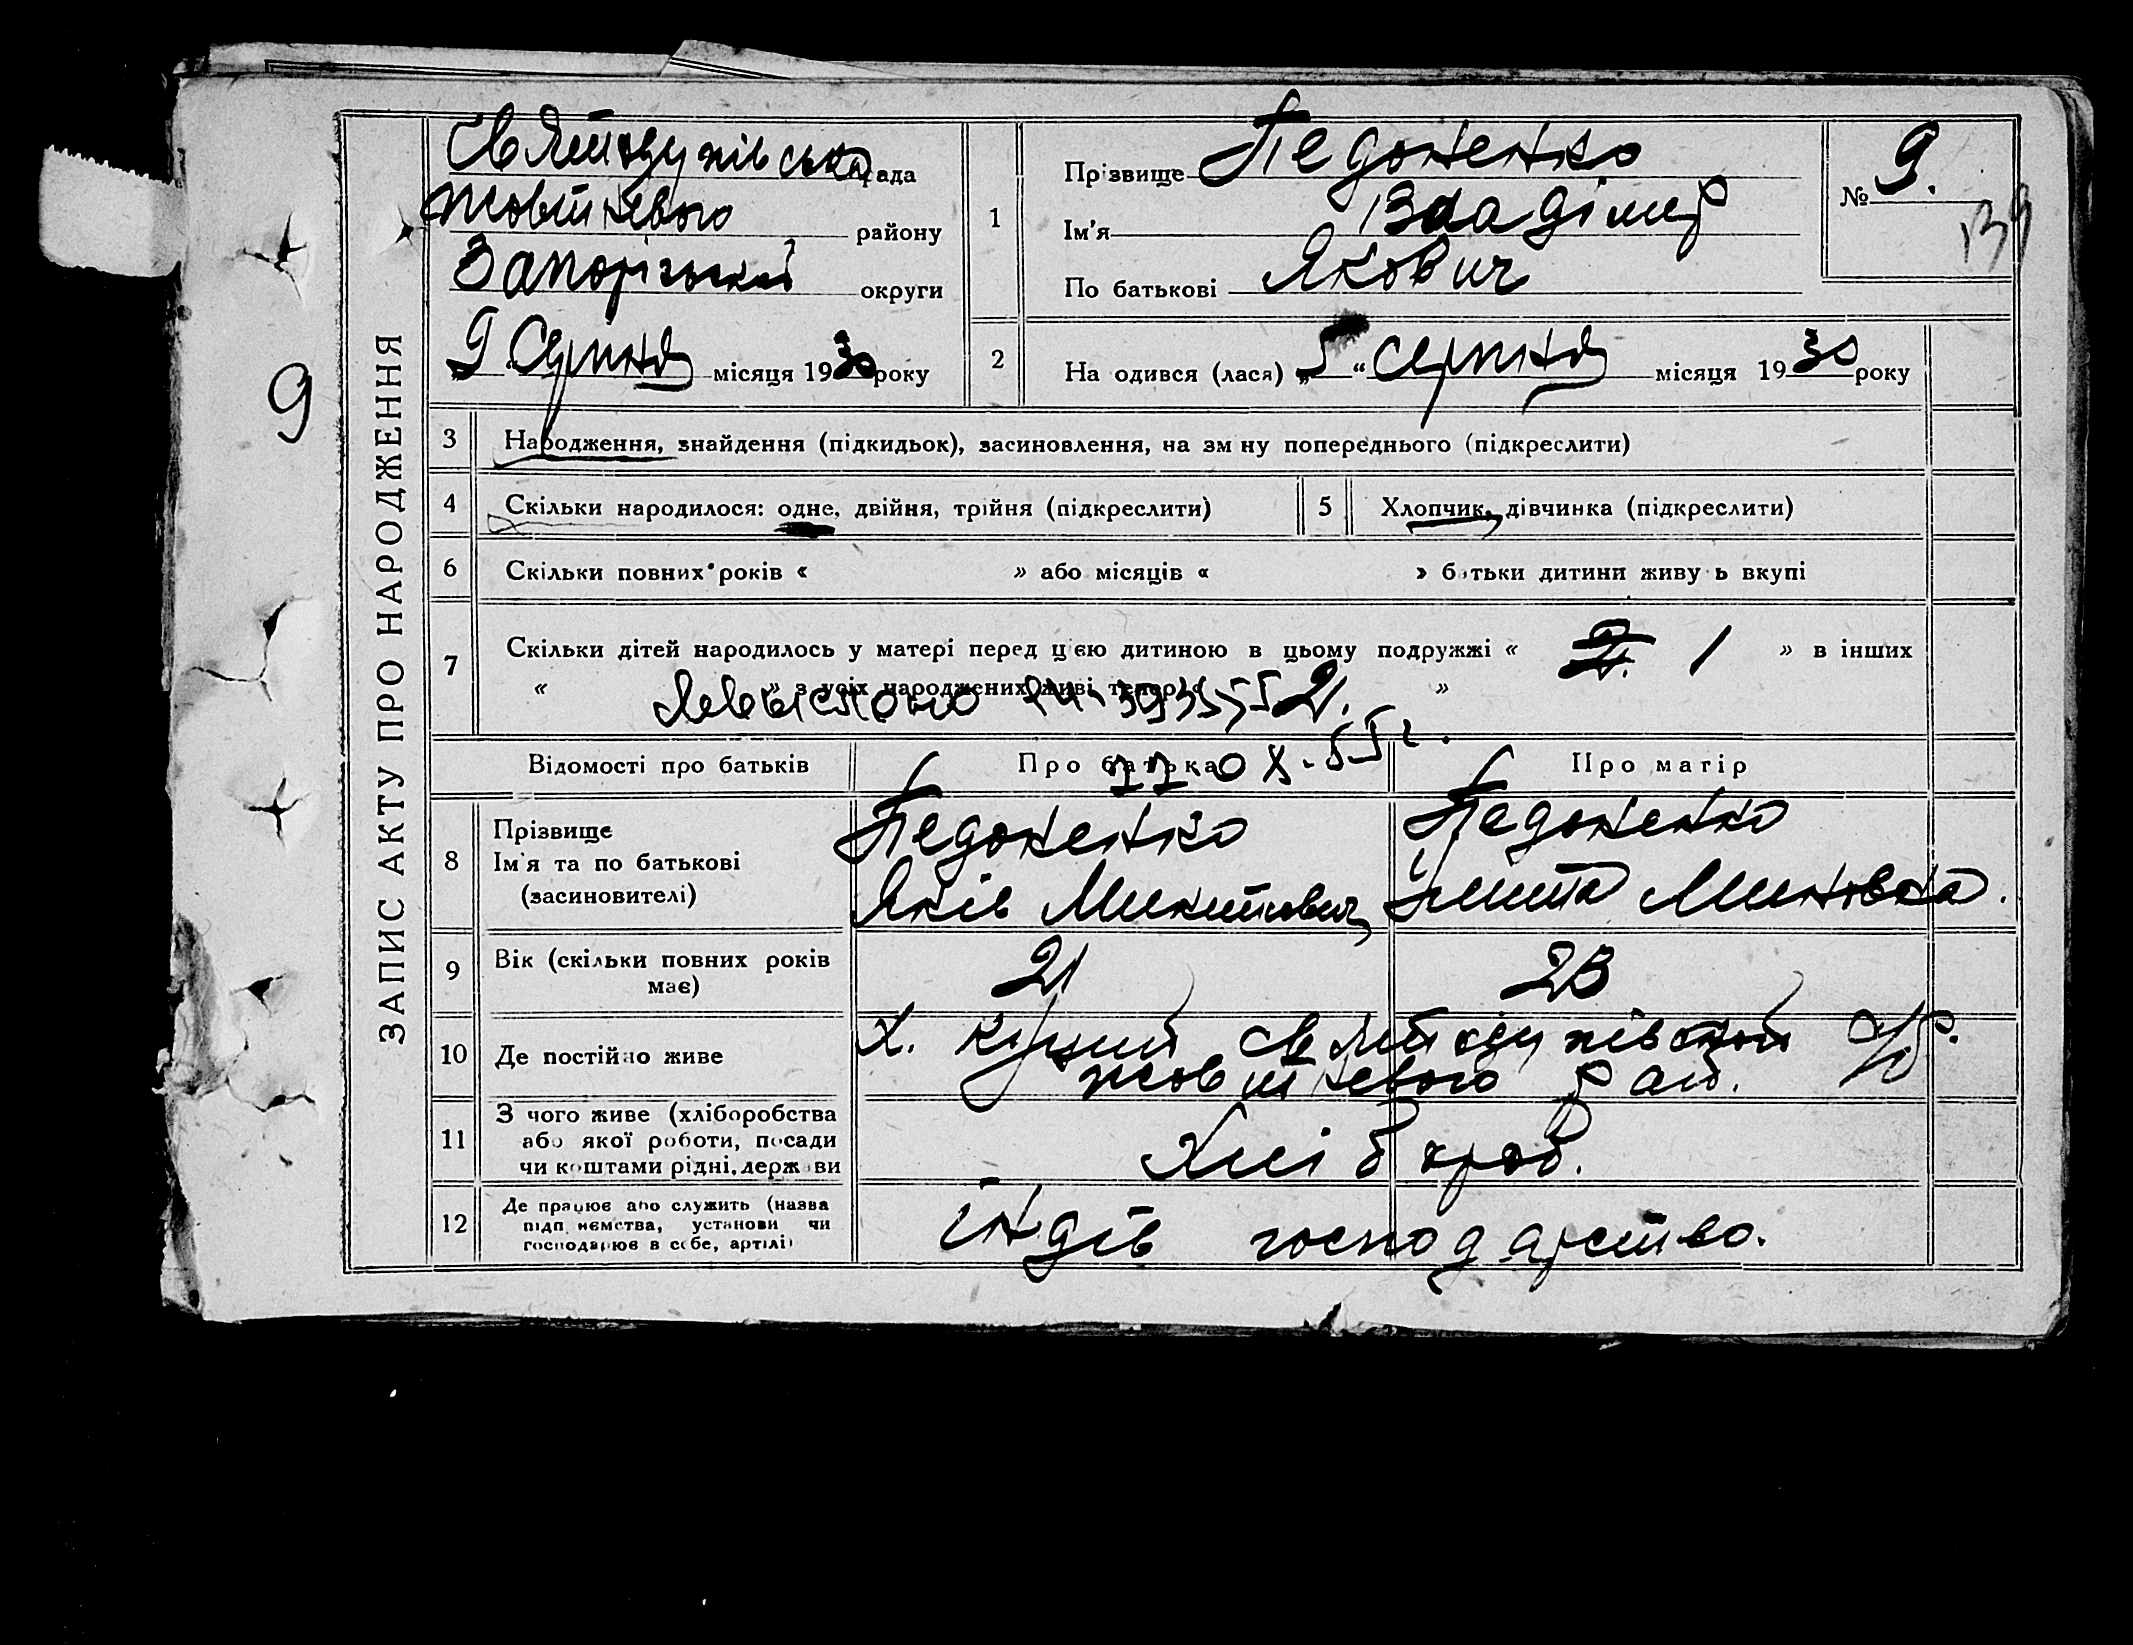 ЗАПИС АКТУ ПРО НАРОДЖЕННЯ
9
Святодухівська рада
Жовтневого району
Запорізької округи
„9“ Серпня місяця 1930 року
1
Прізвище Педоненко
Ім'я Владімер
По батькові Якович
№ 9.
139
2
На одився (лася) „5“ Серпня місяця 1930 року
3
Народження, знайдення (підкидьок), засиновлення, на зм ну попереднього (підкреслити)
4
Скільки народилося: одне, двійня, трійня (підкреслити)
5
Хлопчик, дівчинка (підкреслити)
6
Скільки повних років « » або місяців « » б тьки дитини живу ь вкупі
7
Скільки дітей народилось у матері перед цією дитиною в цьому подружжі « 2. 1 » в інших
« » з усіх народжених живі тепер « 2. »
55 г.
Відомості про батьків
Про батька
Про матір
8
Прізвище
Ім'я та по батькові
(засиновителі)
Педоненко
Яків Микитович
Педоненко
9
Вік (скільки повних років
має)
21
23
10
Де постійно живе
Х. Святодухівської с/р.
Жовтневого рай.
11
З чого живе (хліборобства
або якої роботи, посади
чи коштами рідні, держ ви
Хлібороб.
12
Де працює або служить (назва
підп иємства, установи чи
господарює в себе, артілі)
індів господарство.